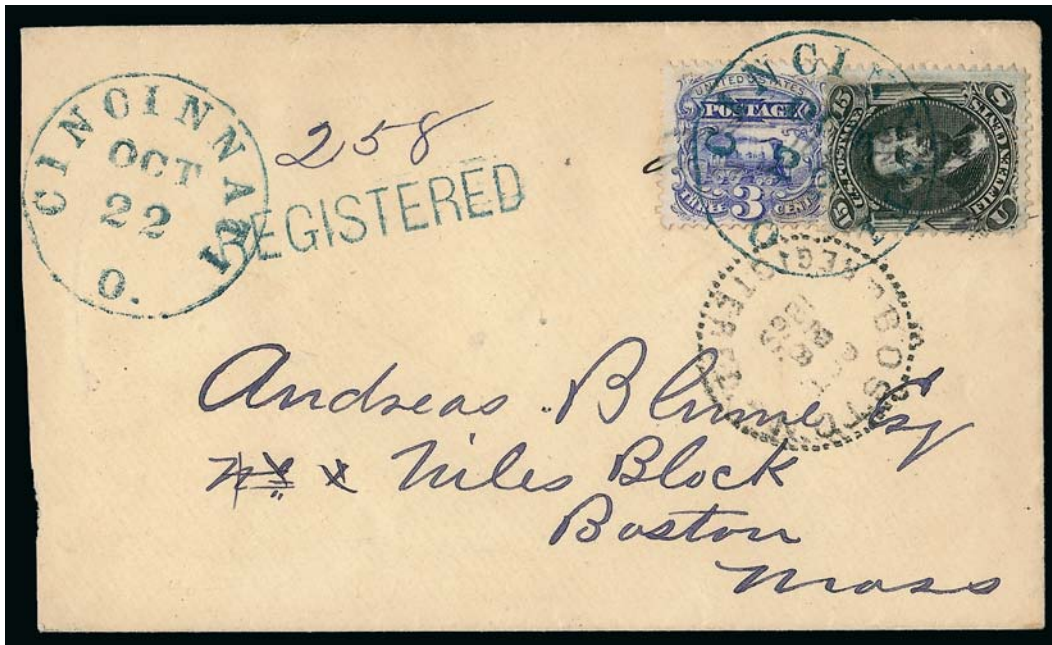 CINCINNATI
OCT
22
O.
258
REGISTERED
UNITED STATES
POSTAGE
THREE 3 CENTS
CINCIN
O
15 U.S. POSTAGE 15
U FIFTEEN CENTS S
BOSTON
REGISTERED
Andreas Blume Esq
Niles Block
Boston
Mass